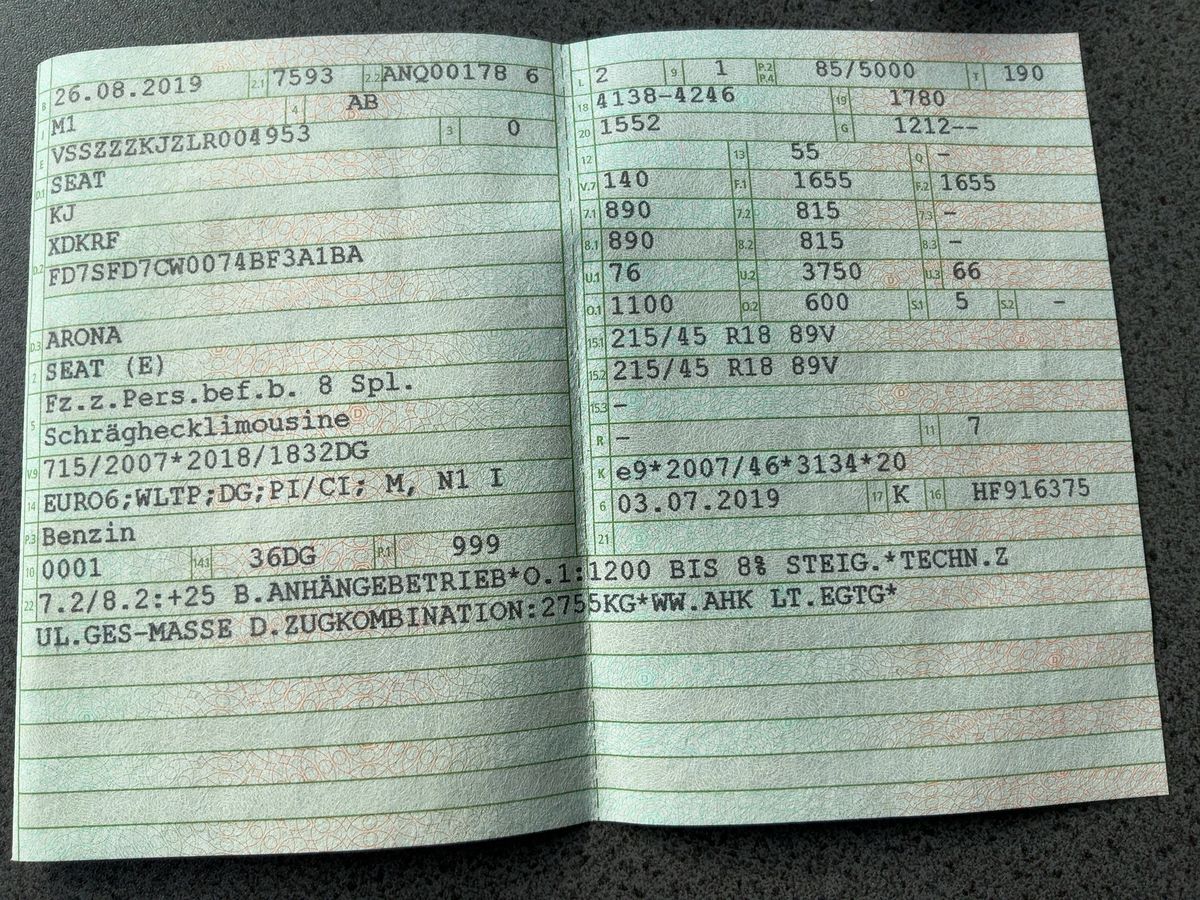 B 26.08.2019 2.1 7593 2.2 ANQ00178 6
J M1 4 AB
E VSSZZZKJZLR004953 3 0
D.1 SEAT
KJ
D.2 XDKRF
FD7SFD7CW0074BF3A1BA
D.3 ARONA
2 SEAT (E)
5 Fz.z.Pers.bef.b. 8 Spl.
Schräghecklimousine
V.9 715/2007*2018/1832DG
14 EURO6;WLTP;DG;PI/CI; M, N1 I
P.3 Benzin
10 0001 14.1 36DG P.1 999
L 2 9 1 P.2 P.4 85/5000 T 190
18 4138-4246 19 1780
20 1552 G 1212--
12 13 55 Q -
V.7 140 F.1 1655 F.2 1655
7.1 890 7.2 815 7.3 -
8.1 890 8.2 815 8.3 -
U.1 76 U.2 3750 U.3 66
O.1 1100 O.2 600 S.1 5 S.2 -
15.1 215/45 R18 89V
15.2 215/45 R18 89V
15.3 -
R - 11 7
K e9*2007/46*3134*20
6 03.07.2019 17 K 16 HF916375
21
22 7.2/8.2:+25 B.ANHÄNGEBETRIEB*O.1:1200 BIS 8% STEIG.*TECHN.Z
UL.GES-MASSE D.ZUGKOMBINATION:2755KG*WW.AHK LT.EGTG*